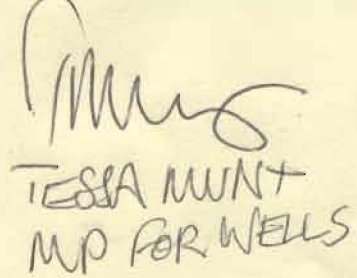 TESSA MUNT
MP FOR WELLS